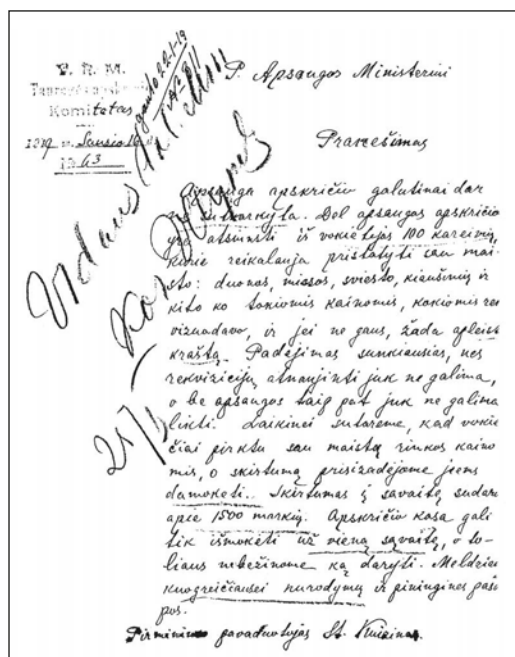 P. R. M.
Komitetas
1919 m. Sausio 16 d.
№ 63
gauta 22-I-19
P. Apsaugos Ministeriui
Pranešimas
Apsauga apskričio galutinai dar
ne sutvarkyta. Dėl apsaugos apskričio
yra atsiųsti iš vokietijos 100 kareivių,
kurie reikalauja pristatyti sau mai-
sto: duonos, mėsos, sviesto, kiaušinių ir
kito ko tokiomis kainomis, kokiomis rek
vizuodavo, ir jei ne gaus, žada apleist
kraštą. Padėjimas sunkiausias, nes
rekvizicijų atnaujinti juk ne galima,
o be apsaugos taip pat juk ne galima
likti. Laikinei sutarėme, kad vokie
čiai pirktu sau maistą rinkos kaino
mis, o skirtumą prisižadėjome jiems
damokėti. Skirtumas į savaitę sudaro
apie 1500 markių. Apskričio kasa gali
tik išmokėti už vieną savaitę, o to-
liaus nebežinome ką daryti. Meldžiu
kuogreičiausei nurodymų ir piniginės pašal
pos.
Pirmininko pavaduotojas St.